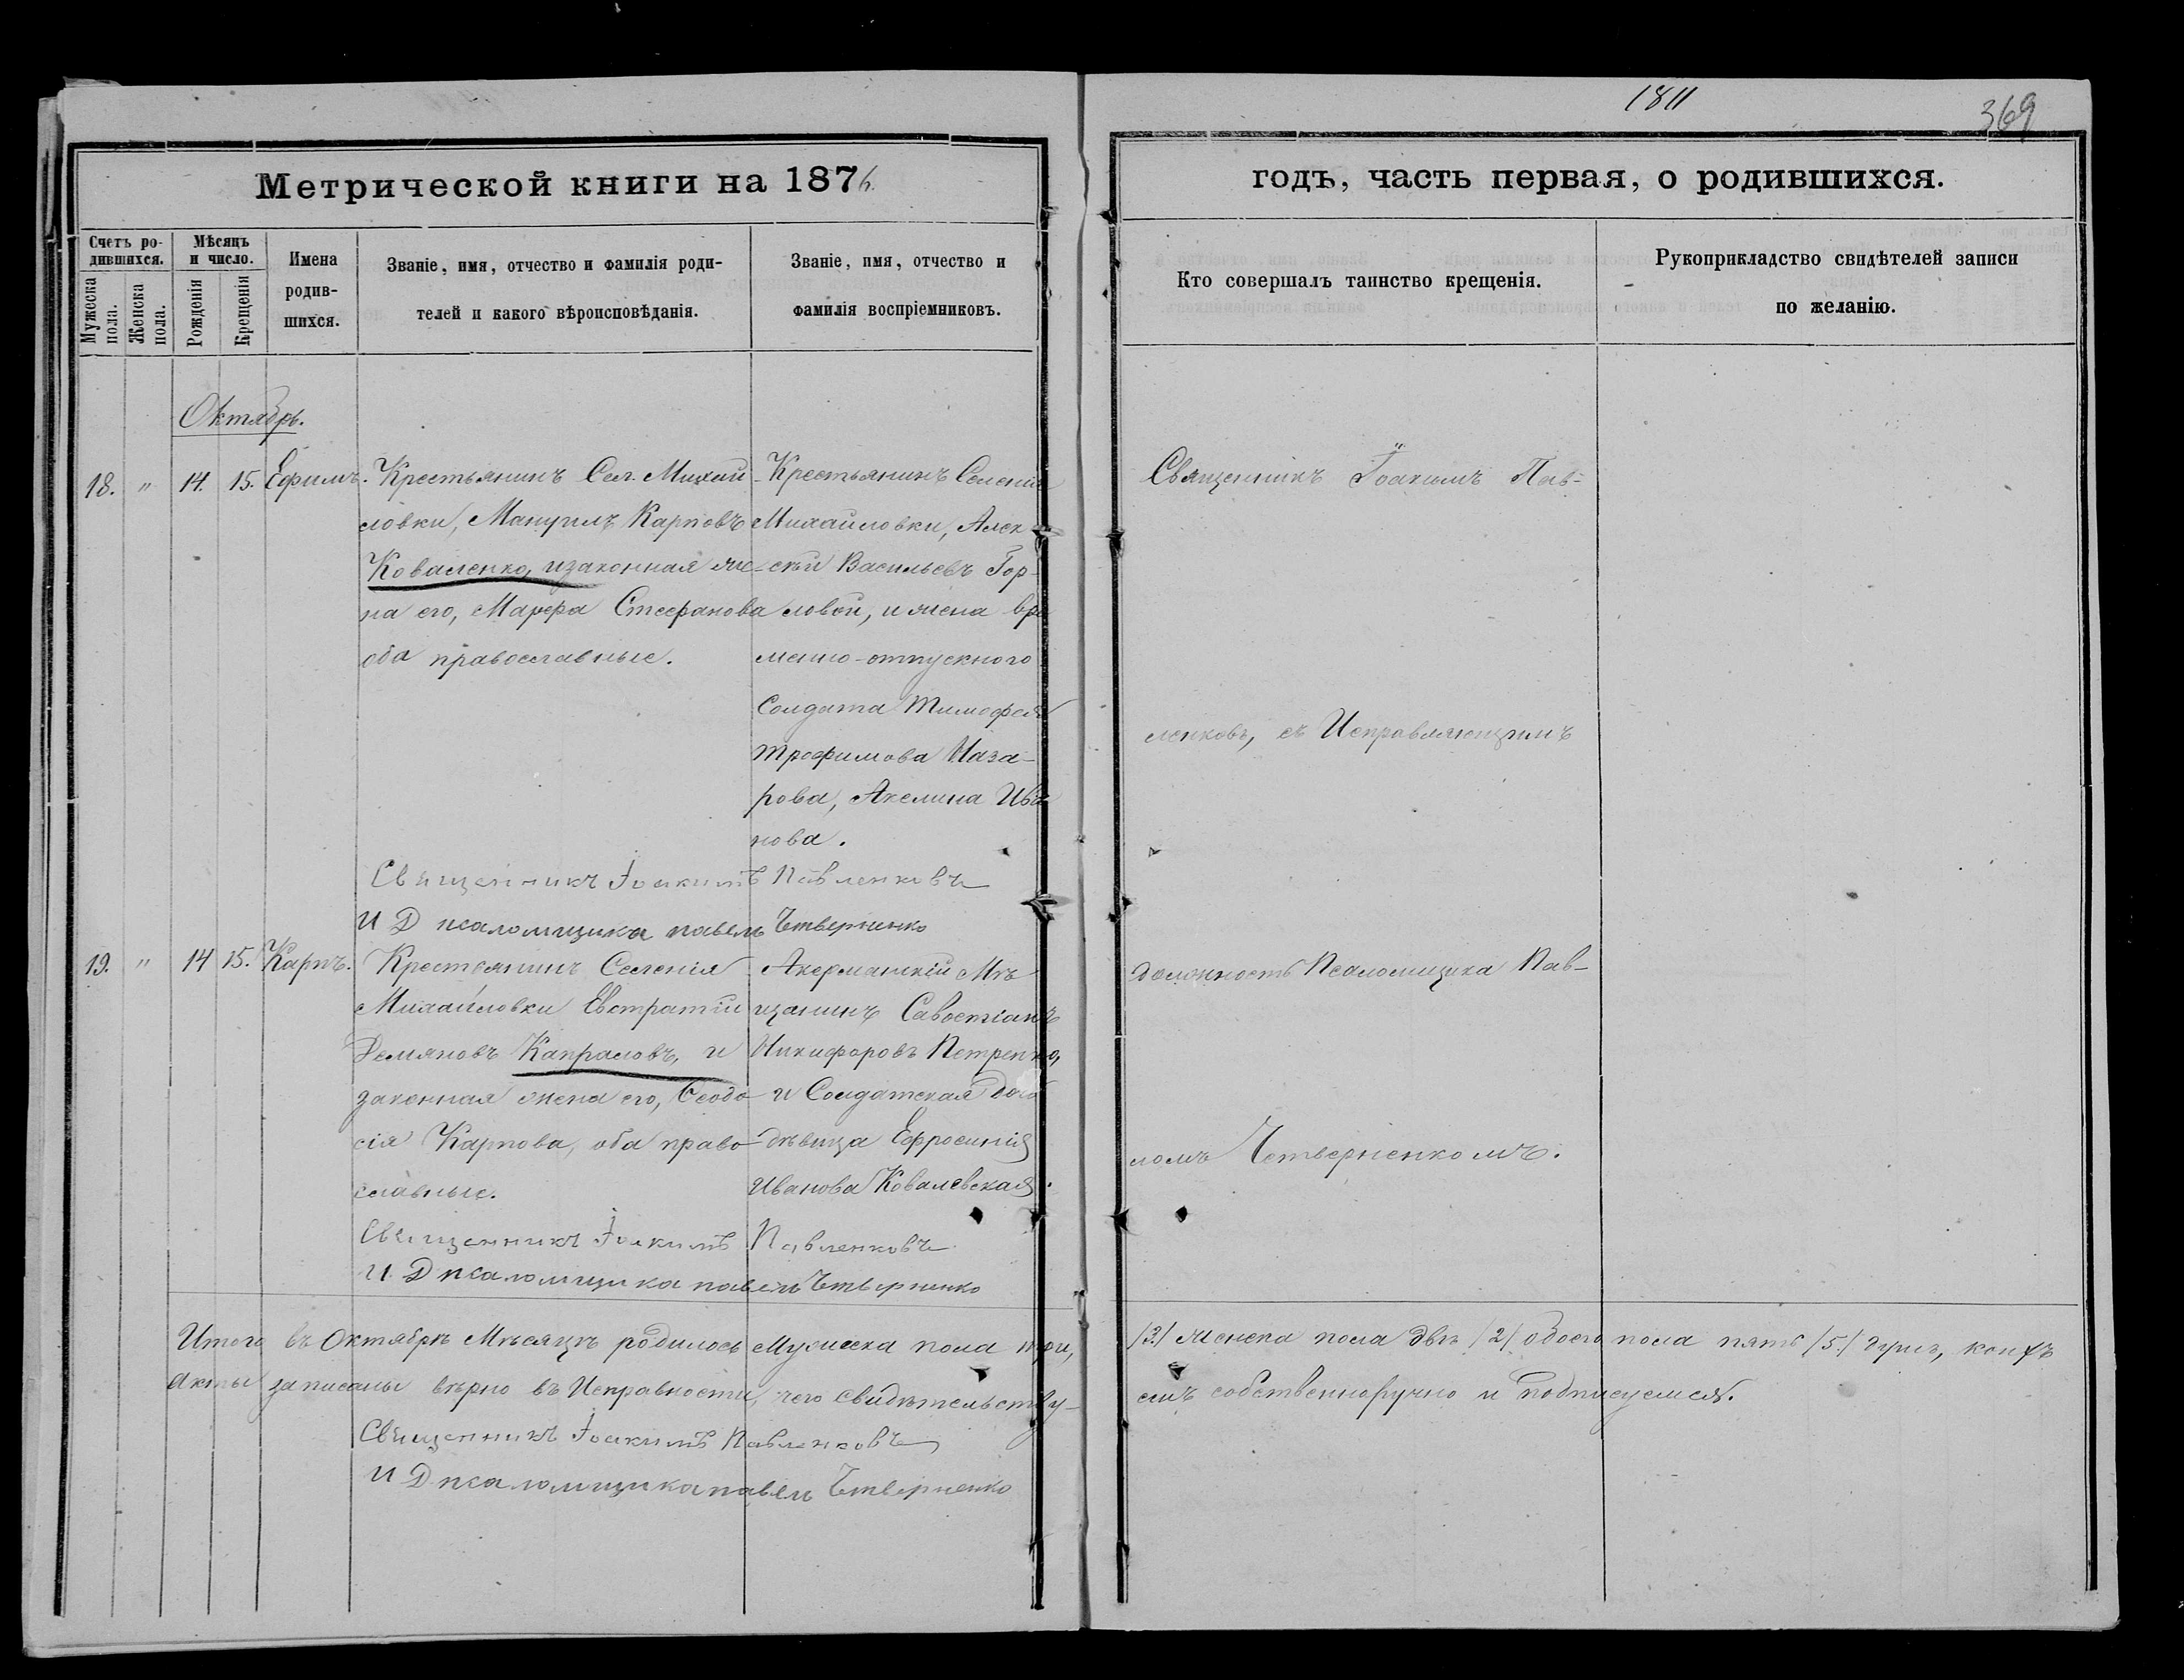 1811
369
Метрической книги на 1876.
годъ, часть первая, о родившихся.
Счетъ ро-
дившихся.
Мужеска пола.
Женска пола.
Мѣсяцъ
и число.
Рожденія
Крещенія
Имена
родив-
шихся.
Званіе, имя, отчество и фамилія роди-
телей и какого вѣроисповѣданія.
Званіе, имя, отчество и
фамилія воспріемниковъ.
Кто совершалъ таинство крещенія.
Рукоприкладство свидѣтелей записи
по желанію.
Октябрь.
18. " 14. 15. Ефимъ.
Крестьянинъ Сел. Михай
ловки, Мануилъ Карповъ
Коваленко, и законная же
на его, Марфа Стефанова
оба православные.
Крестьянинъ Селенія
Михайловки, Алек
сѣй Васильевъ Гор-
ловой, и жена вре
менно-отпускного
Солдата Тимофея
Трофимова Наза-
рова, Акелина Ива
нова.
Священникъ Іоакимъ Павленковъ
И Д псаломщика павелъ Четверненко
19. " 14 15. Карпъ.
Крестьянинъ Селенія
Михайловки Евстратій
Демяновъ Капраловъ, и
законная жена его, Ѳеодо
сія Карпова, оба право
славные.
Акерманскій Мѣ
щанинъ Савостіанъ
Никифоровъ Петренко,
и Солдатская доч
дѣвица Ефросинія
Иванова Ковалевская.
Священникъ Іоакимъ Павленковъ
И. Д псаломщика павелъ Четверненко
Священникъ Іоакимъ Пав-
ленковъ, съ Исправляющимъ
должность Псаломщика Пав-
ломъ Четверненкомъ.
Итого въ Октябрѣ Мѣсяцѣ родилось Мужеска пола три, /3./ женска пола двѣ /2/ обоего пола пять /5./ душъ,
Акты записаны вѣрно въ Исправности, чего свидѣтельству-
емъ собственноручно и подписуемся.
Священникъ Іоакимъ Павленковъ
И Д псаломщика павелъ Четверненко